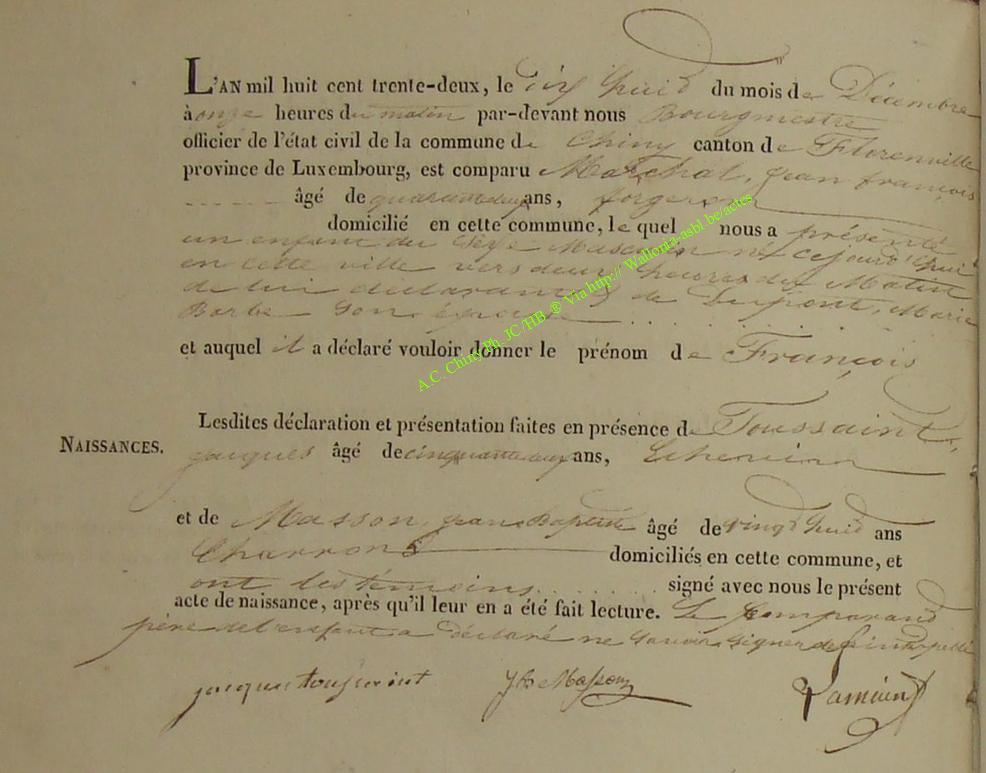 L'AN mil huit cent trente-deux, le dix huid du mois de Décembre
à onze heures du matin par-devant nous Bourgmestre
officier de l'état civil de la commune de Chiny canton de Florenville
province de Luxembourg, est comparu Maréchal, jean françois
âgé de quarante ans, forgeron
domicilié en cette commune, le quel nous a présenté
un enfant du sexe Masculin né cejourd'hui
en cette ville vers deux heures du Matin
de lui déclarant & de Dupont, Marie
Barbe son épouse
et auquel il a déclaré vouloir donner le prénom de François
Lesdites déclaration et présentation faites en présence de Toussaint,
NAISSANCES.
jacques âgé de cinquante ans, Echevin
et de Masson, jean Baptiste âgé de vingd huid ans
Charron domiciliés en cette commune, et
ont les témoins signé avec nous le présent
acte de naissance, après qu'il leur en a été fait lecture. Le Comparand
père del'enfant a déclaré ne savoir signer de ce interpellé
jacque toussaint JB Masson
A.C. Chiny Ph. JC /HB. ® Via http:// Wallonia-asbl.be/actes